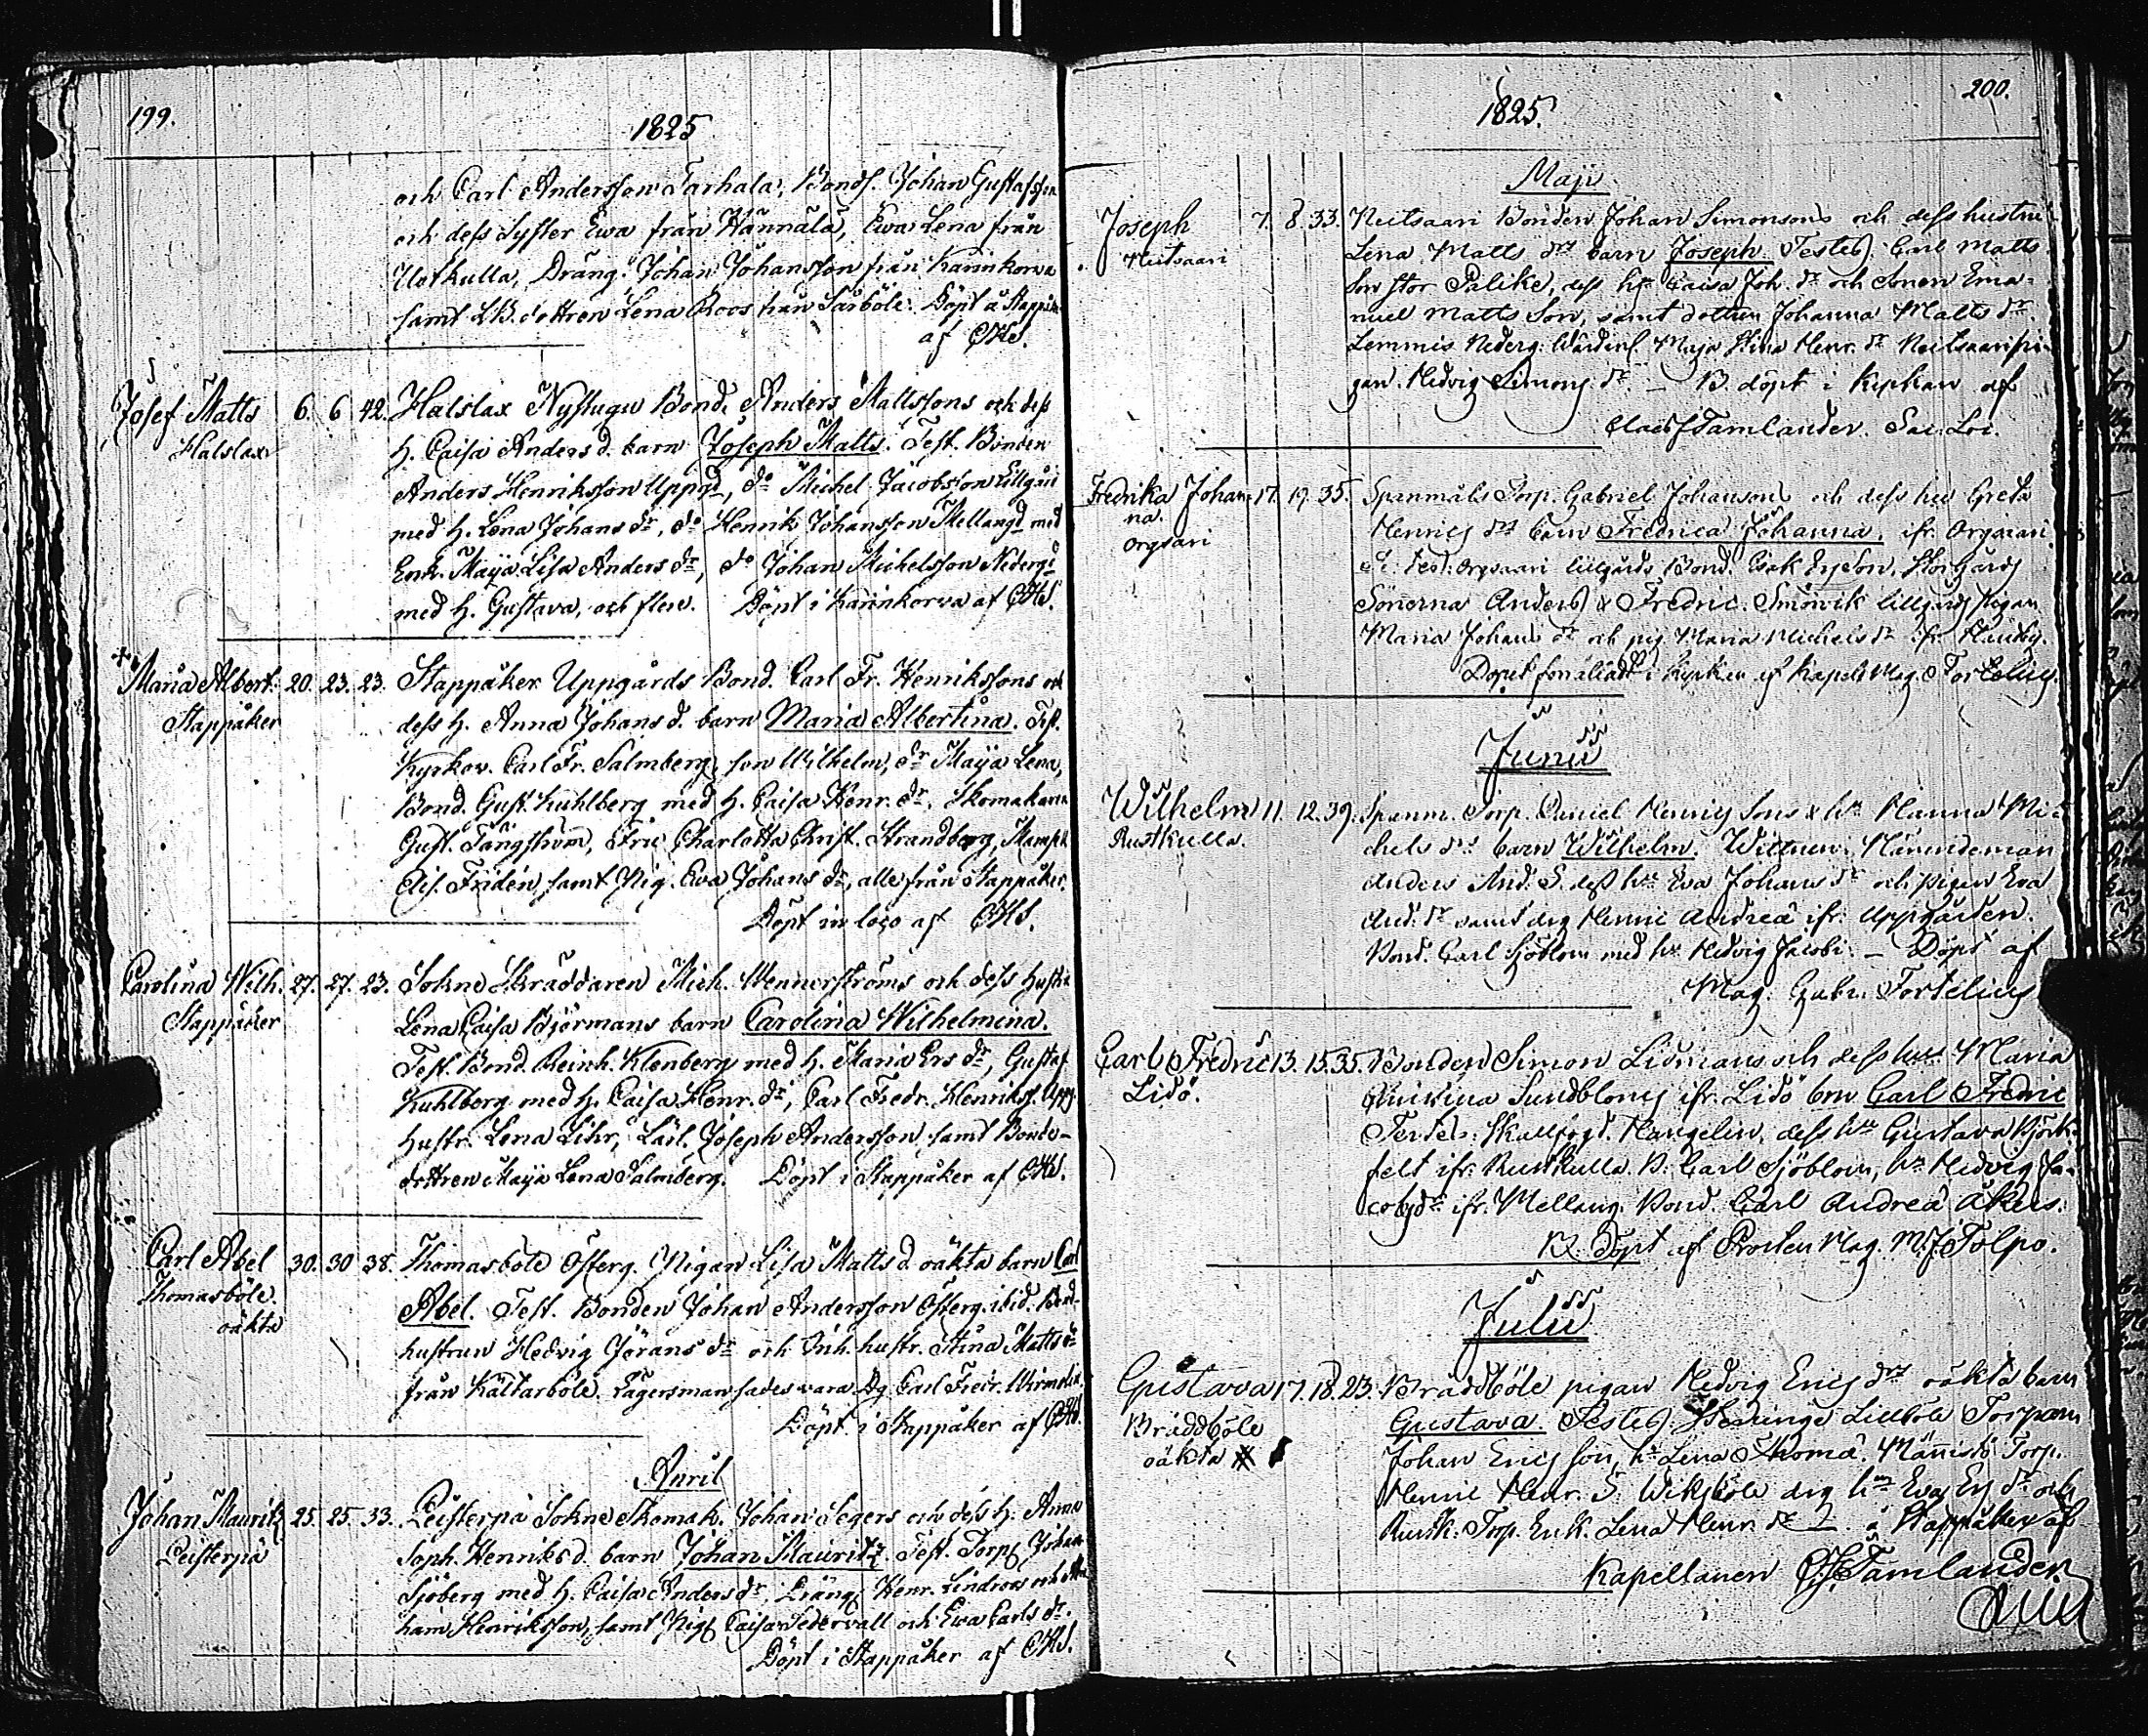 199.
1825
och Carl Andersson Tarhala, Bonds. Johan Gustafsson
och dess Syster Ewa från Hannala, Ewa Lena från
Ulotkulla, Dräng. Johan Johansson från Karinkorva
samt LB. dottren Lena Roos från Sarböle. Döpt å Stappåk.
af CHS.
Josef Matts 6. 6 42. Halslax Nystugu Bond. Anders Mattssons och dess
Halslax H. Caisa Anders d. barn Joseph Matts. Test. Bonden
Anders Henriksson Uppgd, do Michel Jacobsson Lillgård
med H. Lena Johans dr, do Henrik Johansson Mellangd med
Enk. Maija Lisa Anders dr, do Johan Michelsson Nedergd
med H. Gustava, och flere. Döpt i Karinkorva af CHS.
+ Maria Albert. 20. 23. 23. Stappåker Uppgårds Bond. Carl Fr. Henrikssons och
Stappåker dess H. Anna Johans d. barn Maria Albertina. Test.
Kyrkov. Carl Fr. Salmberg, son Wilhelm, dr Maija Lena,
Bond. Gust. Kuhlberg med H. Caisa Henr. dr, Skomakaren
Gust. Tångström, Fru Charlotta Christ. Strandberg, Mamsell
Fridén, samt Pig. Eva Johans dr, alle från Stappåker.
Döpt in loco af CHS.
Carolina Wilh. 27. 27. 23. Sokne Skräddaren Mich. Wennerströms och dess hustru
Stappåker Lena Caisa Björmans barn Carolina Wilhelmina.
Test. Bond. Reinh. Klenberg med H. Maria Ers dr, Gustaf
Kuhlberg med H. Caisa Henr. dr, Carl Fredr. Henrikss. Uppg.
Hustr. Lena Lihr, Lärl. Joseph Andersson, samt Bonde-
dottren Maija Lena Salmberg. Döpt i Stappåker af CHS.
Carl Abel 30. 30 38. Thomasböle Österg. Pigan Lisa Matts d. oäkta barn Carl
Thomasböle. Abel. Test. Bonden Johan Andersson Österg. ibid. Bond-
oäkta hustrun Hedvig Jörans dr och Inh. hustr. Stina Matts dr
från Kältarböle. Lägersman sades vara Dg. Carl Fredr.
Döpt i Stappåker af CHS.
April
Johan Mauritz 25. 25. 33. Leisterpä Sokne Skomak. Johan Segers och dess H. Anna
Leisterpä Soph. Henriks d. barn Johan Mauritz. Test. Torp. Johan
Sjöberg med H. Caisa Anders dr, Dräng. Henr. Lindroos och
Henriksson, samt Pig. Caisa Cedervall och Ewa Carls dr.
Döpt i Stappåker af CHS.
200.
1825.
Maji
Joseph 7. 8. 33. Neitsaari Bonden Johan Simonsons och dess hustru
Neitsaari Lena Matts drs barn Joseph Testes: Carl Matts
Son Stor Palike, dess hu Caisa Joh. dr och Sonen Ema-
nuel Matts Son, samt dottren Johanna Matts dr.
Lemmis Nederg. Maja Stina Henr. dr Neitsaari pi-
gan Hedvig Simons dr. — B. döpt i Kyrkan af
Claës Tamlander. Sac. Loc.
Fredrika Johan- 17. 19. 35. Spanmåls Torp. Gabriel Johansons och dess hu Greta
na. Henrics drs barn Fredrica Johanna, ifr. Orgsaari
Orgsari Test: Orgsaari Lillgårds Bond. Storgårds
Sönerna Anders & Fredric. Smörvik lillgårds pigan
Maria Johans dr och pig. Maria Michels dr ifr.
Dopet förrättadt i Kyrkan af Kapell. Mag. Fortelius.
Junii
Wilhelm 11. 12. 39. Spanm. Torp. Daniel Henrics Sons & hu Hanna Mi-
Rustkulla. chels drs barn Wilhelm. Wittnen: Nämndeman
Anders And. S. dess hu Eva Johans dr och pigan Eva
And. dr samt drg Henric Andreæ ifr. Uppgården.
Bond. Carl Sjöblom med hu Hedvig Jacobi. — Döpt af
Mag. Gabr. Fortelius
Carl Fredric 13. 15. 35. Bonden Simon Lidmans och dess hus Maria
Lidö. Sundbloms ifr. Lidö brn Carl Fredric
Testes: Skallfogd. Mangelin, dess hu Gustava Björk-
felt ifr. Rustkulla. B. Carl Sjöblom, hu Hedvig Ja-
cobs dr ifr. Mellang. Bond. Carl Andreæ Åkers.
B. Döpt af Prosten Mag. M. J. Tolpo.
Julii
Gustava 17. 18. 23. Bräddböle pigan Hedvig Erics drs oäkta barn
Bräddböle Gustava. Testes: Lillböle Torparn
oäkta Johan Erics son, hu Lena Thomæ. Torp.
Henric Henr. S. Wiksböle drg hu Eva Ers dr och
Rusk. Torp. Enk. Lena Henr. dr å Stappåker af
Kapellanen C. H. Tamlander.